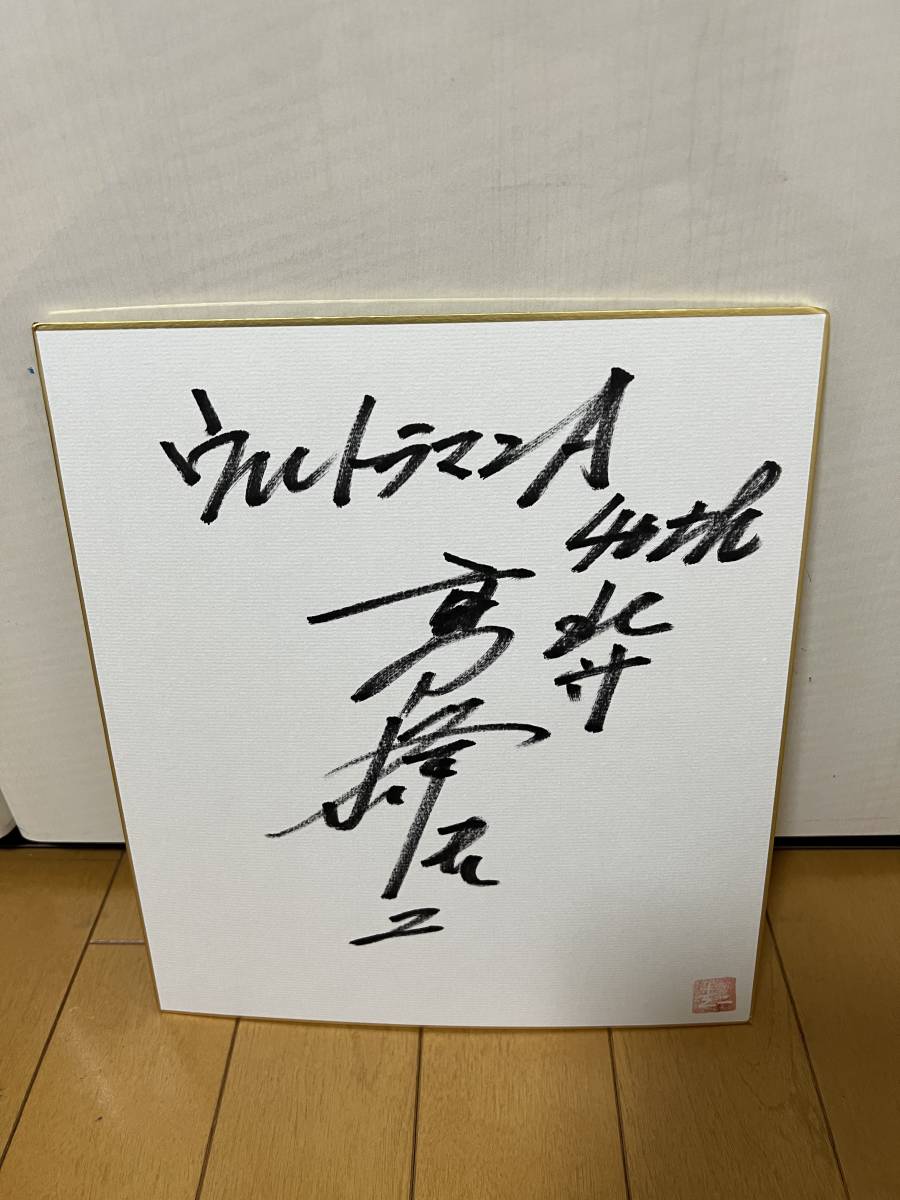 ウルトラマンA
40th
北斗
高峰圭二